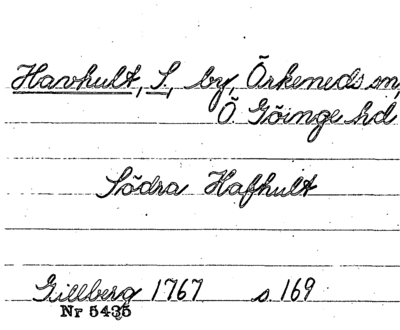 Havhult, S., by, Örkeneds sn,
Ö. Göinge hd
Södra Hafhult
Gillberg 1767 s. 169
Nr 5435